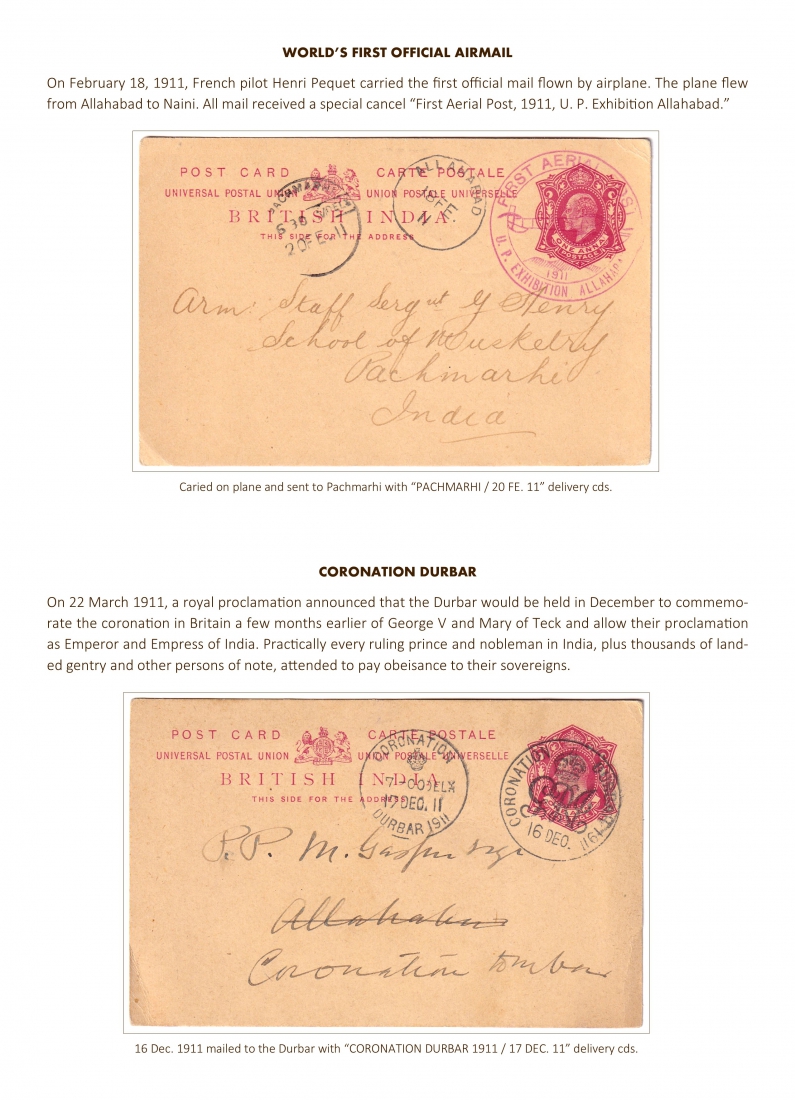 WORLD'S FIRST OFFICIAL AIRMAIL
On February 18, 1911, French pilot Henri Pequet carried the first official mail flown by airplane. The plane flew
from Allahabad to Naini. All mail received a special cancel “First Aerial Post, 1911, U. P. Exhibition Allahabad.”
POST CARD CARTE POSTALE
UNIVERSAL POSTAL UNION UNION POSTALE UNIVERSELLE
BRITISH INDIA
THIS SIDE FOR THE ADDRESS
PACHMARHI
20 FE. 11
ALLAHABAD
18 FE.
FIRST AERIAL POST
1911
U. P. EXHIBITION ALLAHABAD
ONE ANNA
POSTAGE
Arm: Staff Sergnt G Henry
School of Musketry
Pachmarhi
India
Caried on plane and sent to Pachmarhi with “PACHMARHI / 20 FE. 11” delivery cds.
CORONATION DURBAR
On 22 March 1911, a royal proclamation announced that the Durbar would be held in December to commemo-
rate the coronation in Britain a few months earlier of George V and Mary of Teck and allow their proclamation
as Emperor and Empress of India. Practically every ruling prince and nobleman in India, plus thousands of land-
ed gentry and other persons of note, attended to pay obeisance to their sovereigns.
POST CARD CARTE POSTALE
UNIVERSAL POSTAL UNION UNION POSTALE UNIVERSELLE
BRITISH INDIA
THIS SIDE FOR THE ADDRESS
CORONATION
17 DEC. 11
DURBAR 1911
CORONATION DURBAR 1911
16 DEC.
P.P. M. Gasper
Allahabad
Coronation Durbar
16 Dec. 1911 mailed to the Durbar with “CORONATION DURBAR 1911 / 17 DEC. 11” delivery cds.